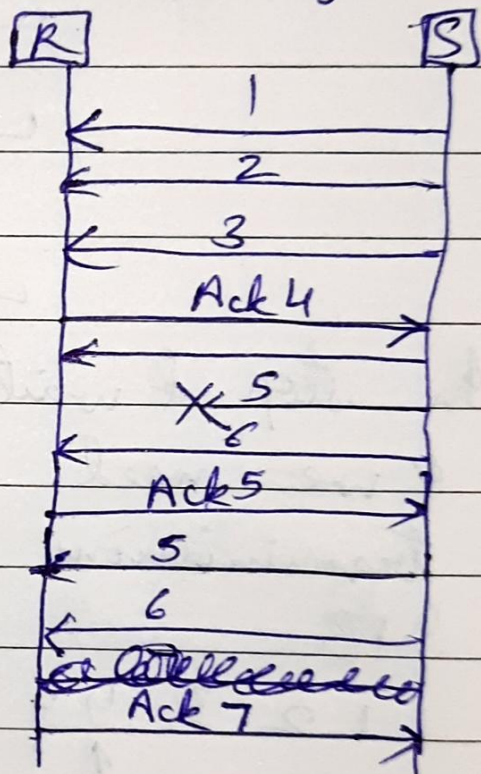 R S
1
2
3
Ack 4
5
6
Ack 5
5
6
Ack 7